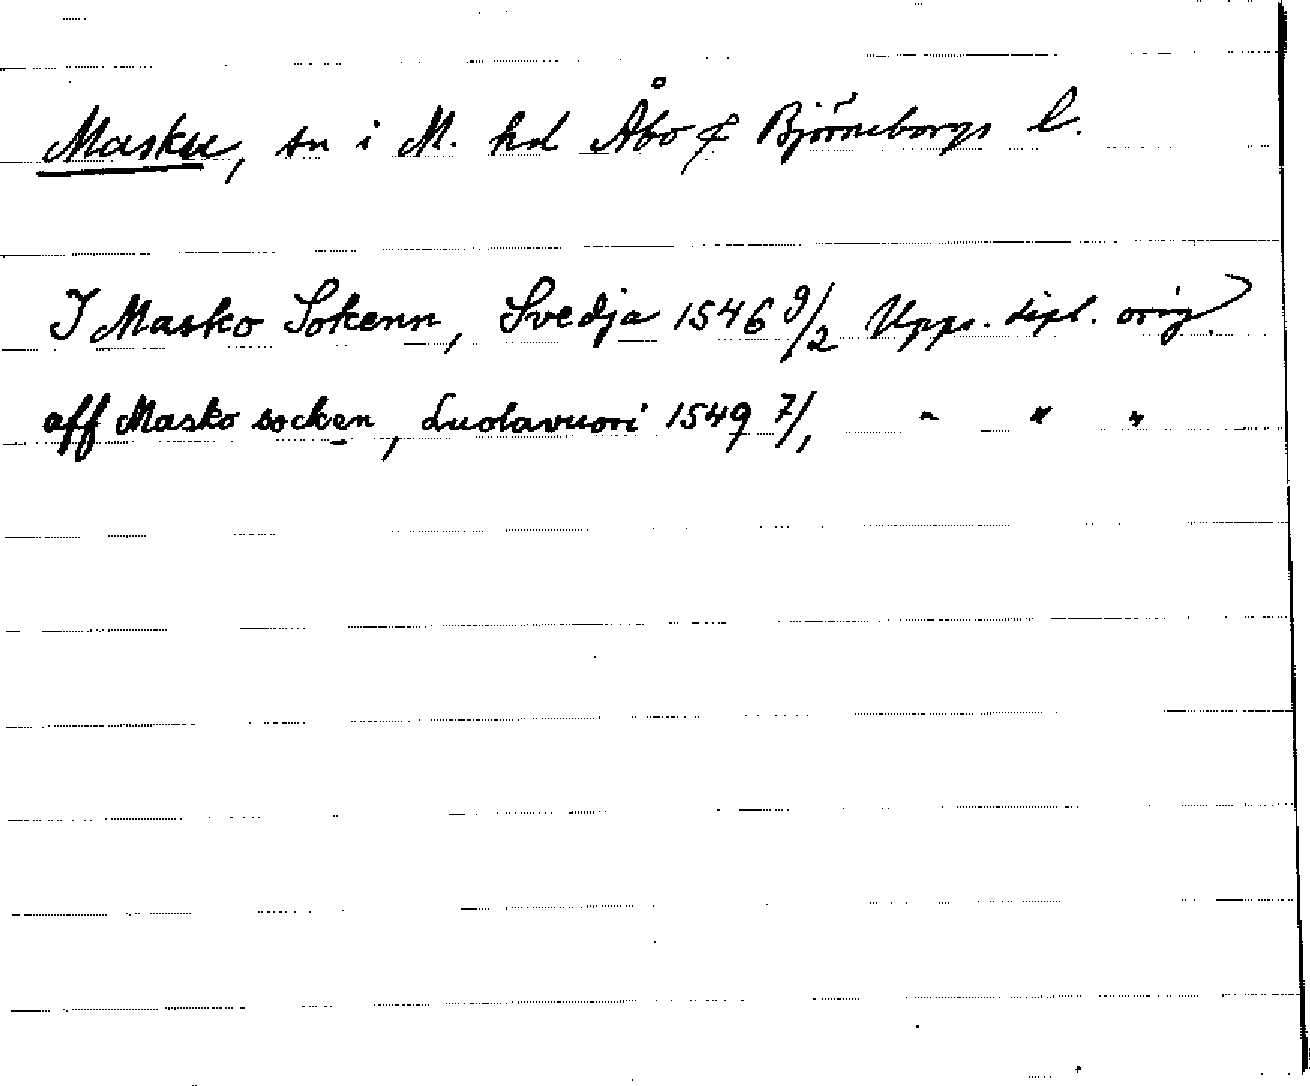 Masku, sn i M. hd Åbo & Björneborgs l.
I Masko Sokenn, Svedja 1546 9/2 Upps. dipl. orig.
aff Masko socken, Luolavuori 1549 7/1 " " "